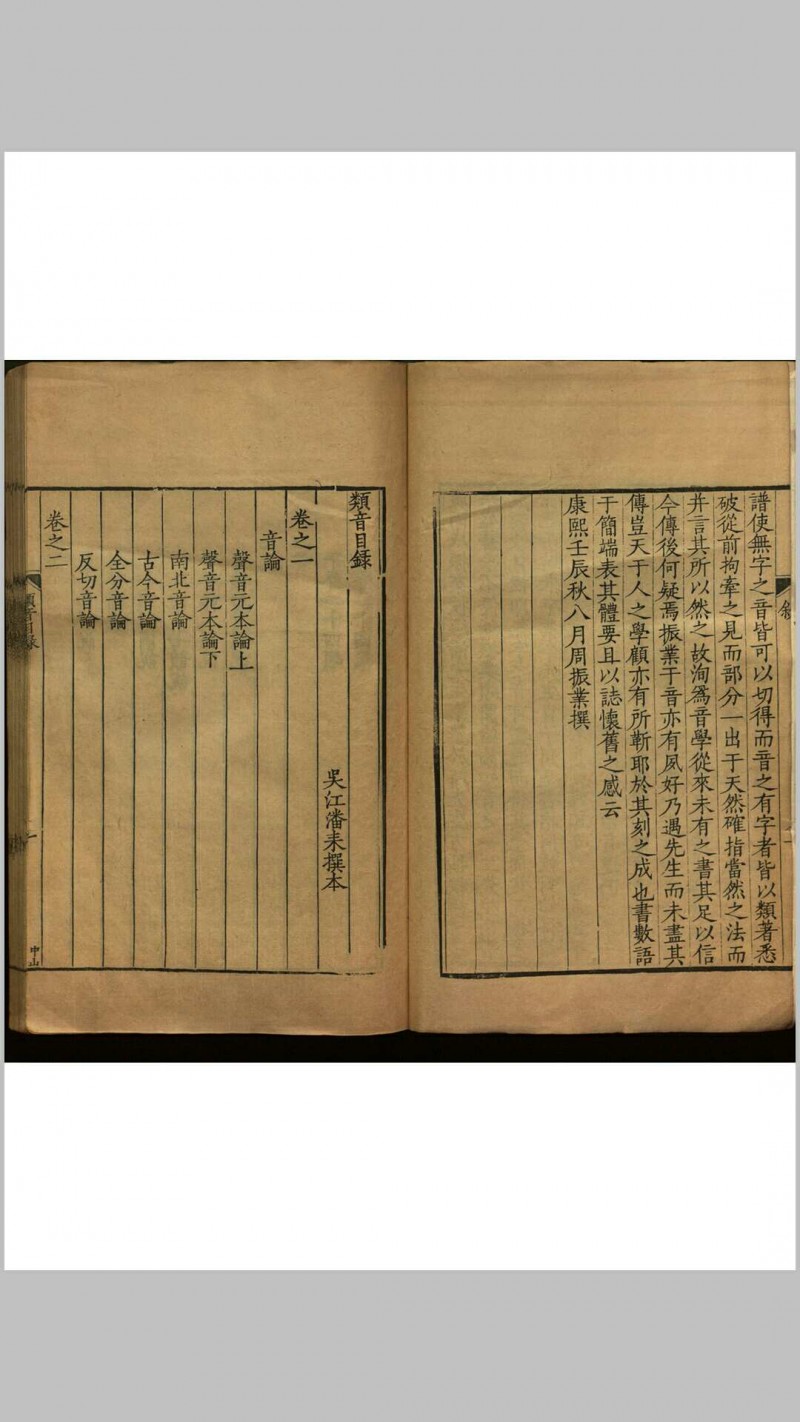 譜使無字之音皆可以切得而音之有字者皆以類著悉
破從前拘牽之見而部分一出于天然確指當然之法而
并言其所以然之故洵爲音學從來未有之書其足以信
今傳後何疑焉振業于音亦有夙好乃遇先生而未盡其
傳豈天于人之學顧亦有所靳耶於其刻之成也書數語
于簡端表其體要且以誌懷舊之感云
康熙壬辰秋八月周振業撰
類音目録
吳江潘耒撰本
卷之一
音論
聲音元本論上
聲音元本論下
南北音論
古今音論
全分音論
反切音論
卷之二
類音目録
一
中山